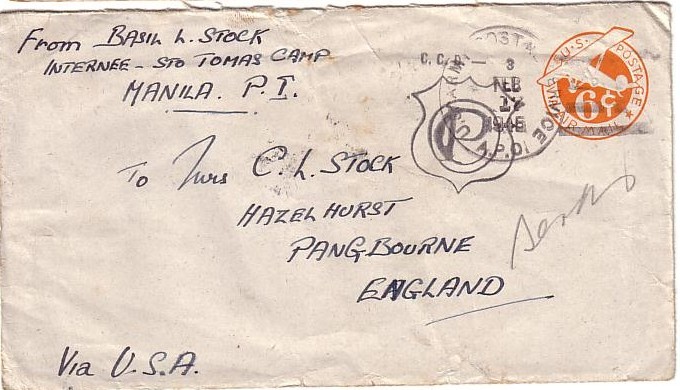 From BASIL L. STOCK
INTERNEE - STO TOMAS CAMP
MANILA. P.I.
C.C.D. - 3
FEB
17
1945
A.P.O.
U.S. POSTAGE
6¢
AIR MAIL
P
To Mrs C. L. STOCK
HAZELHURST
PANGBOURNE
ENGLAND
Via U.S.A.